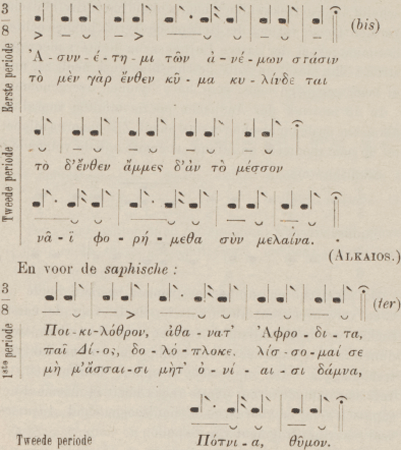 3
8
(bis)
Eerste periode
Ἀ - συν - έ - τη - μι τῶν ἀ - νέ - μων στάσιν
τὸ μὲν γὰρ ἔνθεν κῦ - μα κυ - λίνδε ται
Tweede periode
τὸ δ'ἔνθεν ἄμμες δ'ἀν τὸ μέσσον
νᾶ - ϊ φο - ρή - μεθα σὺν μελαίνα.
(ALKAIOS.)
En voor de saphische :
3
8
(ter)
1ste periode
Ποι - κι - λόθρον, ἀθα - νατ' Ἀφρο - δι - τα,
παῖ Δί - ος, δο - λό - πλοκε. λίσ - σο - μαί σε
μὴ μ'ἄσσαι - σι μήτ' ὀ - νί - αι - σι δάμνα,
Tweede periode Πότνι - α, θῦμον.